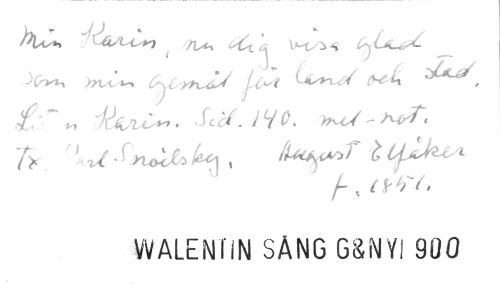 Min Karin, nu dig visa glad
som min gemål för land och stad.
Lit n Karin. Sid. 140. mel-not.
Tx. Carl Snoilsky. August Elfåker
f. 1851.
WALENTIN SÅNG G&NYI 900